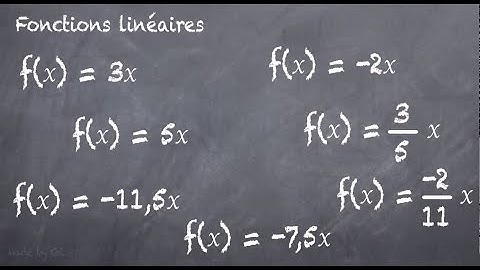 Fonctions linéaires
f(x) = 3x
f(x) = -2x
f(x) = 5x
f(x) = 3/5 x
f(x) = -11,5x
f(x) = -2/11 x
f(x) = -7,5x